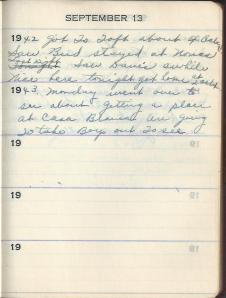 SEPTEMBER 13
1942 Got to Taft about
Saw Bud stayed at House
Saw Davis awhile
Nice here tonight got home
1943 Monday went over to
see about getting a place
at Casa Blanca are going
to take Boys out to see
19
19
19